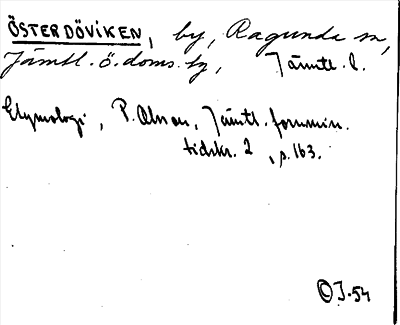 ÖSTERDÖVIKEN, by, Ragunda sn,
Jämtl. ö. doms. tg, Jämtl. l.
Etymologi, P. Olsson, Jämtl. fornmin.
tidskr. 2, s. 163.
© J-54